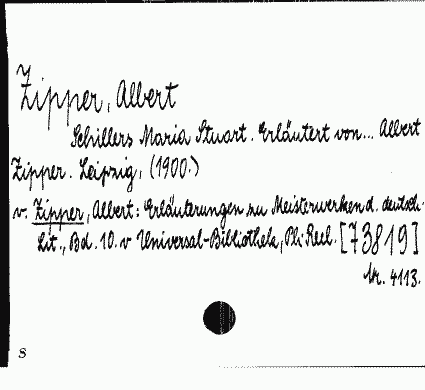 Zipper, Albert
Schillers Maria Stuart. Erläutert von... Albert
Zipper. Leipzig, (1900.)
v. Zipper, Albert: Erläuterungen zu Meisterwerken d. deutsch.
Lit., Bd. 10. v Universal-Bibliothek, Ph. Recl. [73819]
Nr. 4113.
8